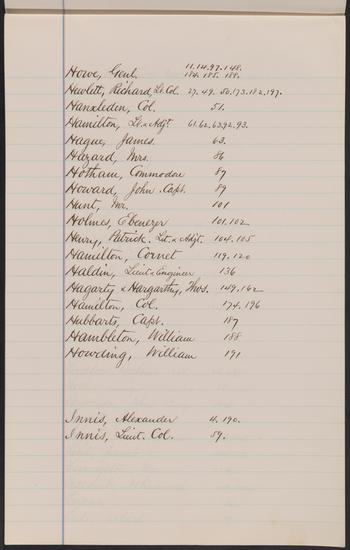 Howe, Genl. 11.14.97.148.
184.185.188.
Hewlett, Richard, Lt. Col. 27.49.50.173.182.197.
Hanxleden, Col. 51.
Hamilton, Lt. & Adjt. 61.62.63.92.93.
Hague, James. 63.
Hazard, Mrs. 86
Hotham, Commodore 87
Howard, John. Capt. 89
Hunt, Mr. 101
Holmes, Ebenezer 101.102.
Henry, Patrick. Lt. & Adjt. 104.105
Hamilton, Cornet 119.120
Haldin, Lieut & Engineer 136
Hagarty & Hargarthy, Thos. 149.162
Hamilton, Col. 174.196
Hubbarts, Capt. 187
Hambleton, William 188
Howding, William 191
Innis, Alexander 4.190.
Innis, Lieut. Col. 59.